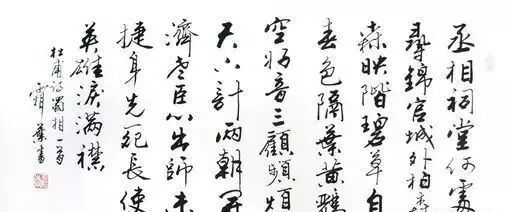 丞相祠堂何處
尋錦官城外柏森
森映階碧草自
春色隔葉黃鸝
空好音三顧頻煩
天下計兩朝開
濟老臣心出師未
捷身先死長使
英雄淚滿襟
杜甫詩蜀相一首
霜 書